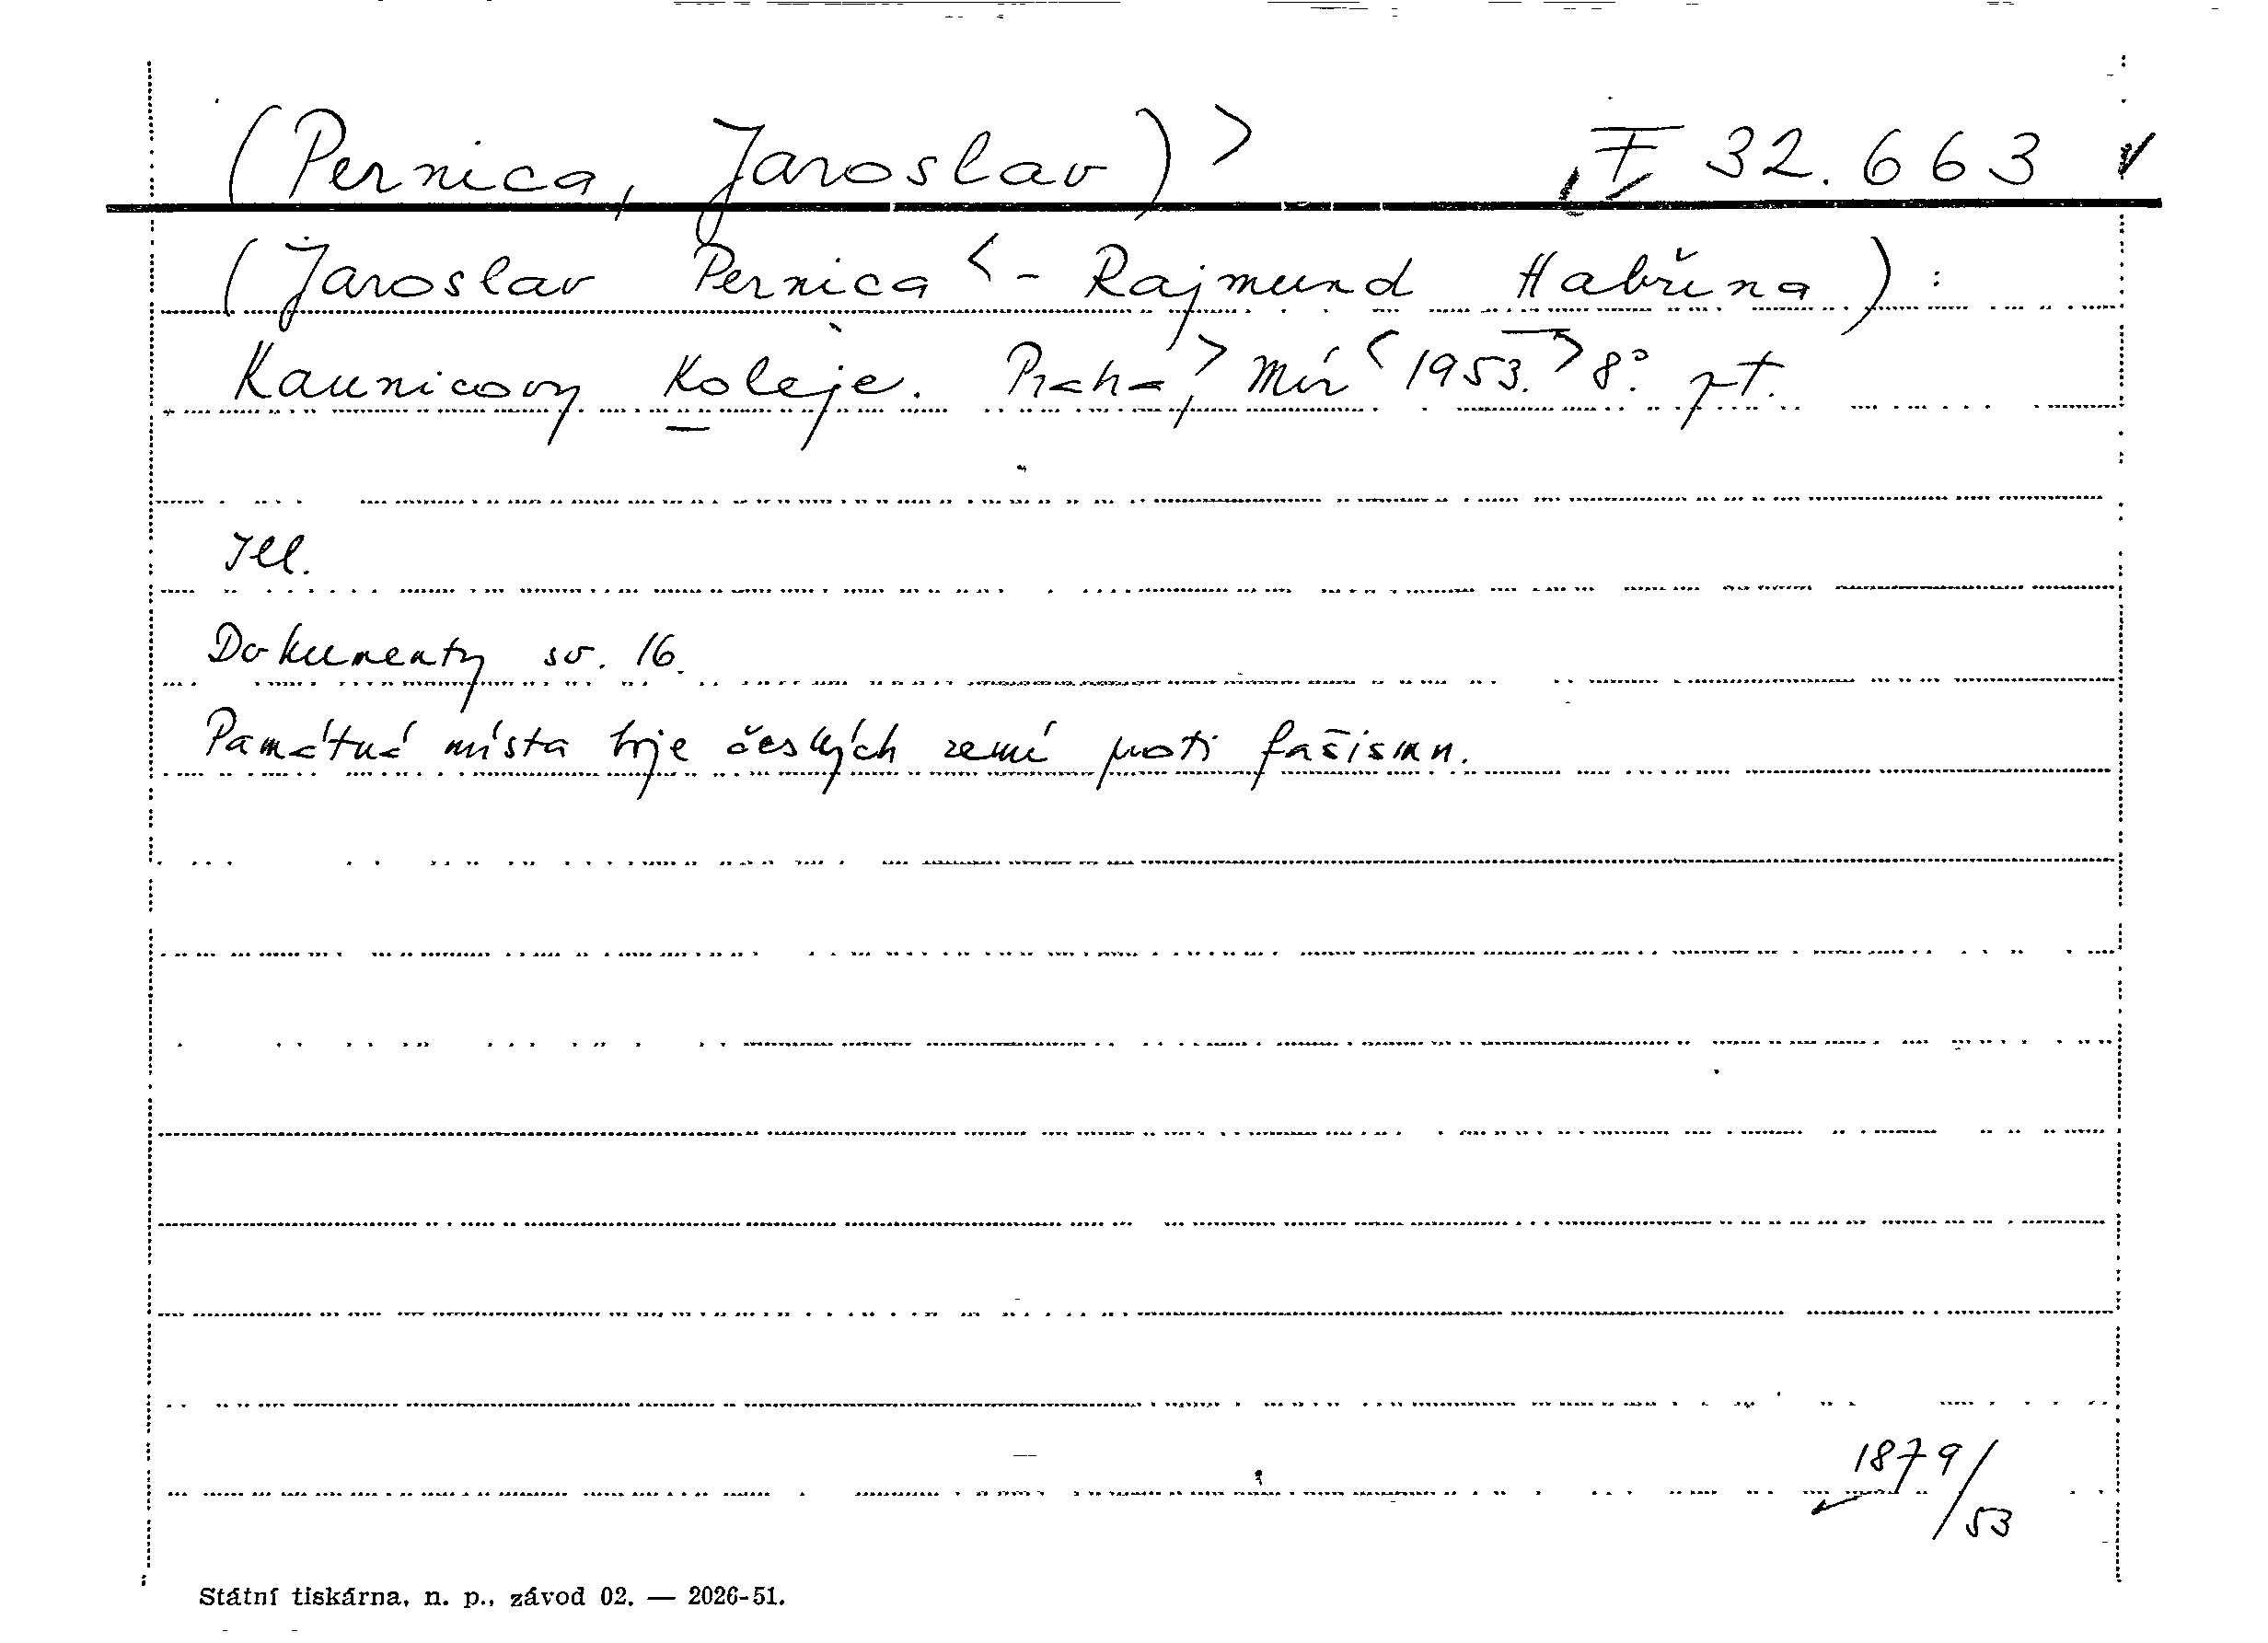 (Pernica, Jaroslav) > I 32.663
(Jaroslav Pernica < - Rajmund Habřina) :
Kaunicovy Koleje. Praha, > Mír < 1953. > 8°. pt.
Ill.
Dokumenty sv. 16.
Památná místa boje českých zemí proti fašismu.
1879/53
Státní tiskárna, n. p., závod 02. — 2026-51.